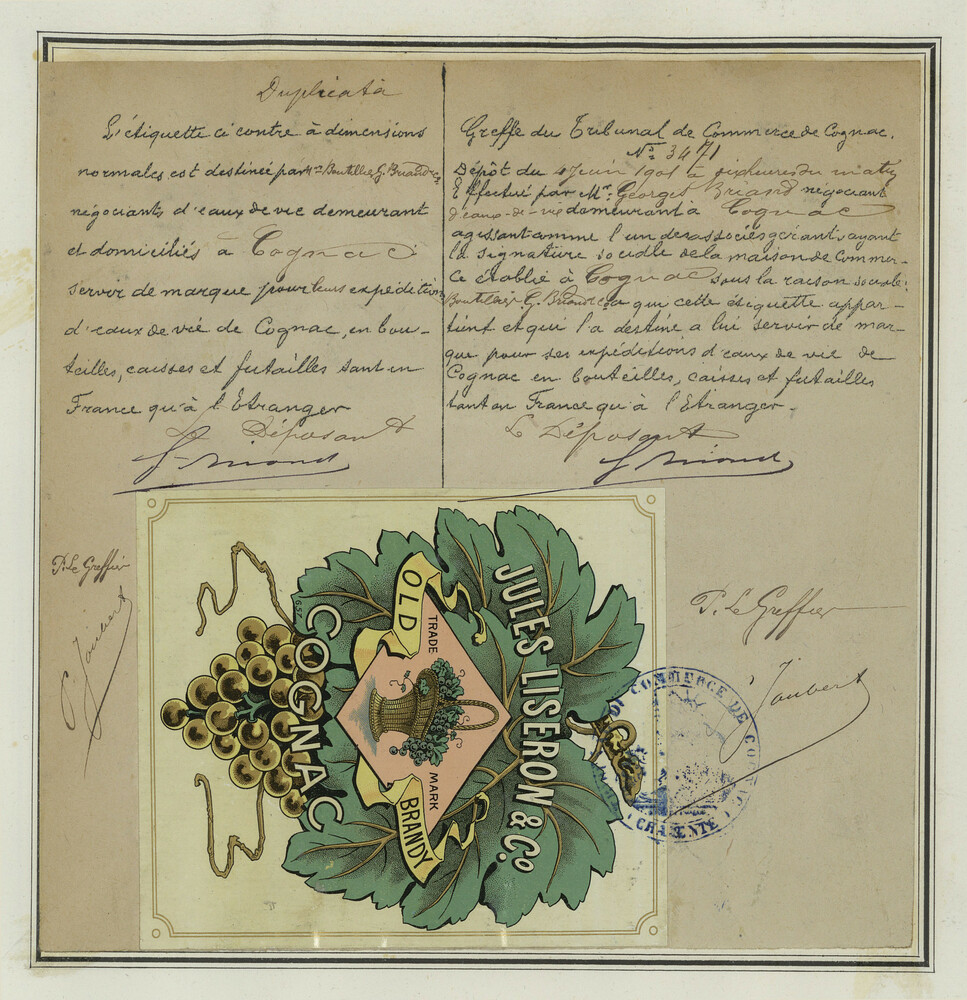 Duplicata
L'étiquette ci contre à dimensions
normales est destinée par Mrs Boutillier G. Briand & Co
négociants d'eaux de vie demeurant
et domiciliés à Cognac
servir de marque pour leurs expéditions
d'eaux de vie de Cognac, en bou-
teilles, caisses et futailles tant en
France qu'à l'Etranger
Le Déposant
G. Briand
Greffe du Tribunal de Commerce de Cognac.
No. 3471
Dépôt du 4 Juin 1901 à dix heures du matin
Effectué par Mr. Georges Briand négociant
d'eaux-de-vie demeurant à Cognac
agissant comme l'un des associés gérants, ayant
la signature sociale de la maison de Commer-
ce établie à Cognac sous la raison sociale:
Boutillier G. Briand & Co a qui cette étiquette appar-
tient et qui l'a destine a lui servir de mar-
que pour ses expéditions d'eaux de vie de
Cognac en bouteilles, caisses et futailles
tant en France qu'à l'Etranger-
Le Déposant
G. Briand
P. Le Greffier
Joubert
JULES LISERON & Co
OLD
BRANDY
TRADE
MARK
COGNAC
P. Le Greffier
Joubert
COMMERCE DE COGNAC
CHARENTE